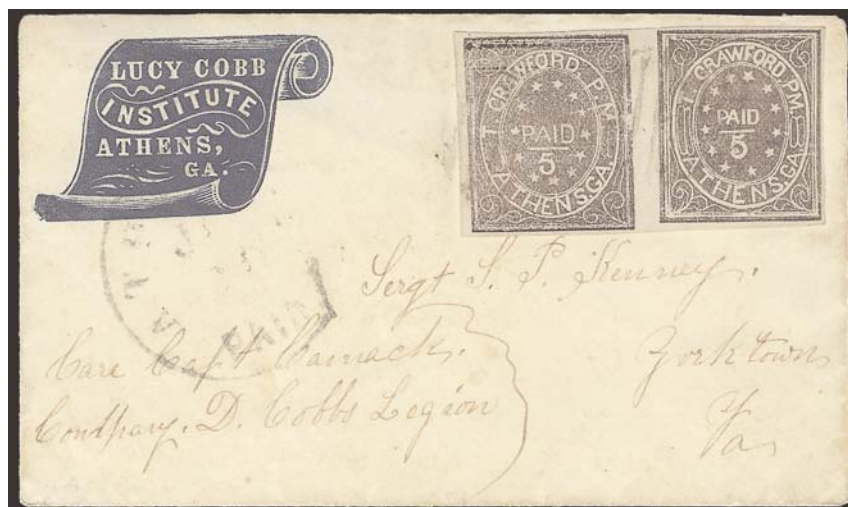 LUCY COBB
INSTITUTE
ATHENS,
GA.
T. CRAWFORD, P.M.
PAID
5
ATHENS, GA.
T. CRAWFORD, P.M.
PAID
5
ATHENS, GA.
PAID
Sergt S. P. Kenney.
Care Capt Camack.
Yorktown
Company. D. Cobbs Legion
Va